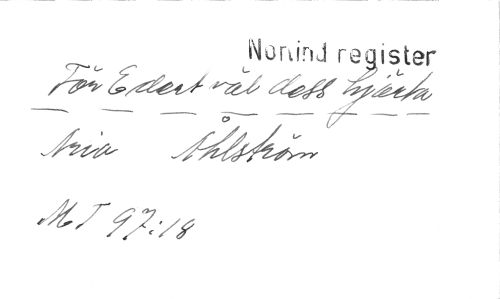 Nonind register
För Edert väl dess hjärta
Aria Ahlström
MT 97:18